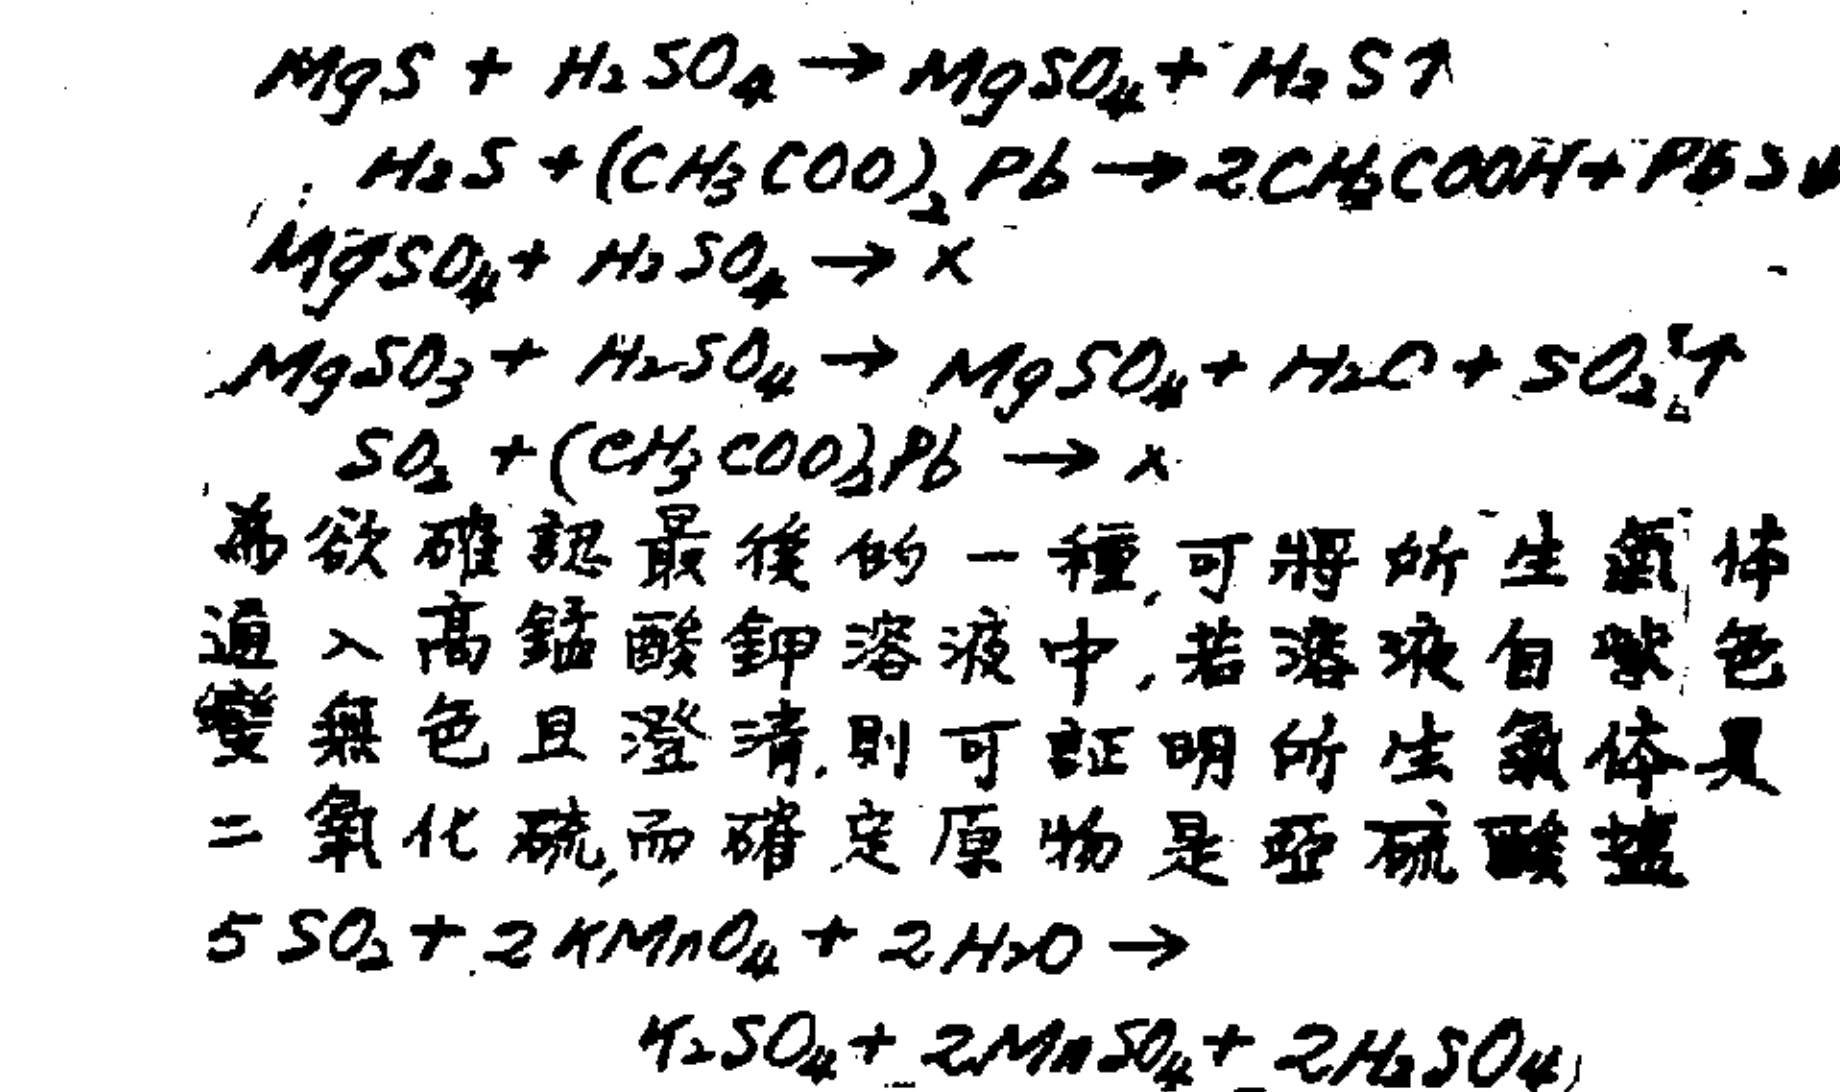 MgS + H₂SO₄ → MgSO₄ + H₂S↑
H₂S + (CH₃COO)₂Pb → 2CH₃COOH + PbS↓
MgSO₄ + H₂SO₄ → ×
MgSO₃ + H₂SO₄ → MgSO₄ + H₂O + SO₂↑
SO₂ + (CH₃COO)₂Pb → ×
為欲確認最後的一種,可將所生氣体
通入高錳酸鉀溶液中,若溶液自紫色
變無色且澄清,則可証明所生氣体是
二氧化硫,而確定原物是亞硫酸鹽
5SO₂ + 2KMnO₄ + 2H₂O →
K₂SO₄ + 2MnSO₄ + 2H₂SO₄